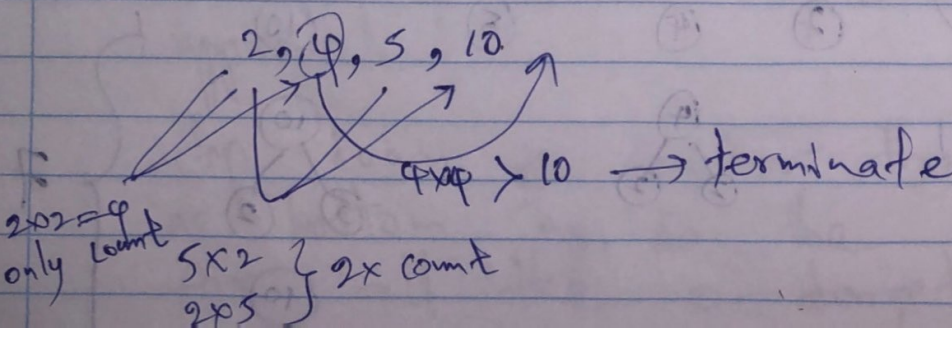 2, 4, 5, 10
4x4 > 10 → terminate
2x2=4
only count
5x2
2x5 } 2x count